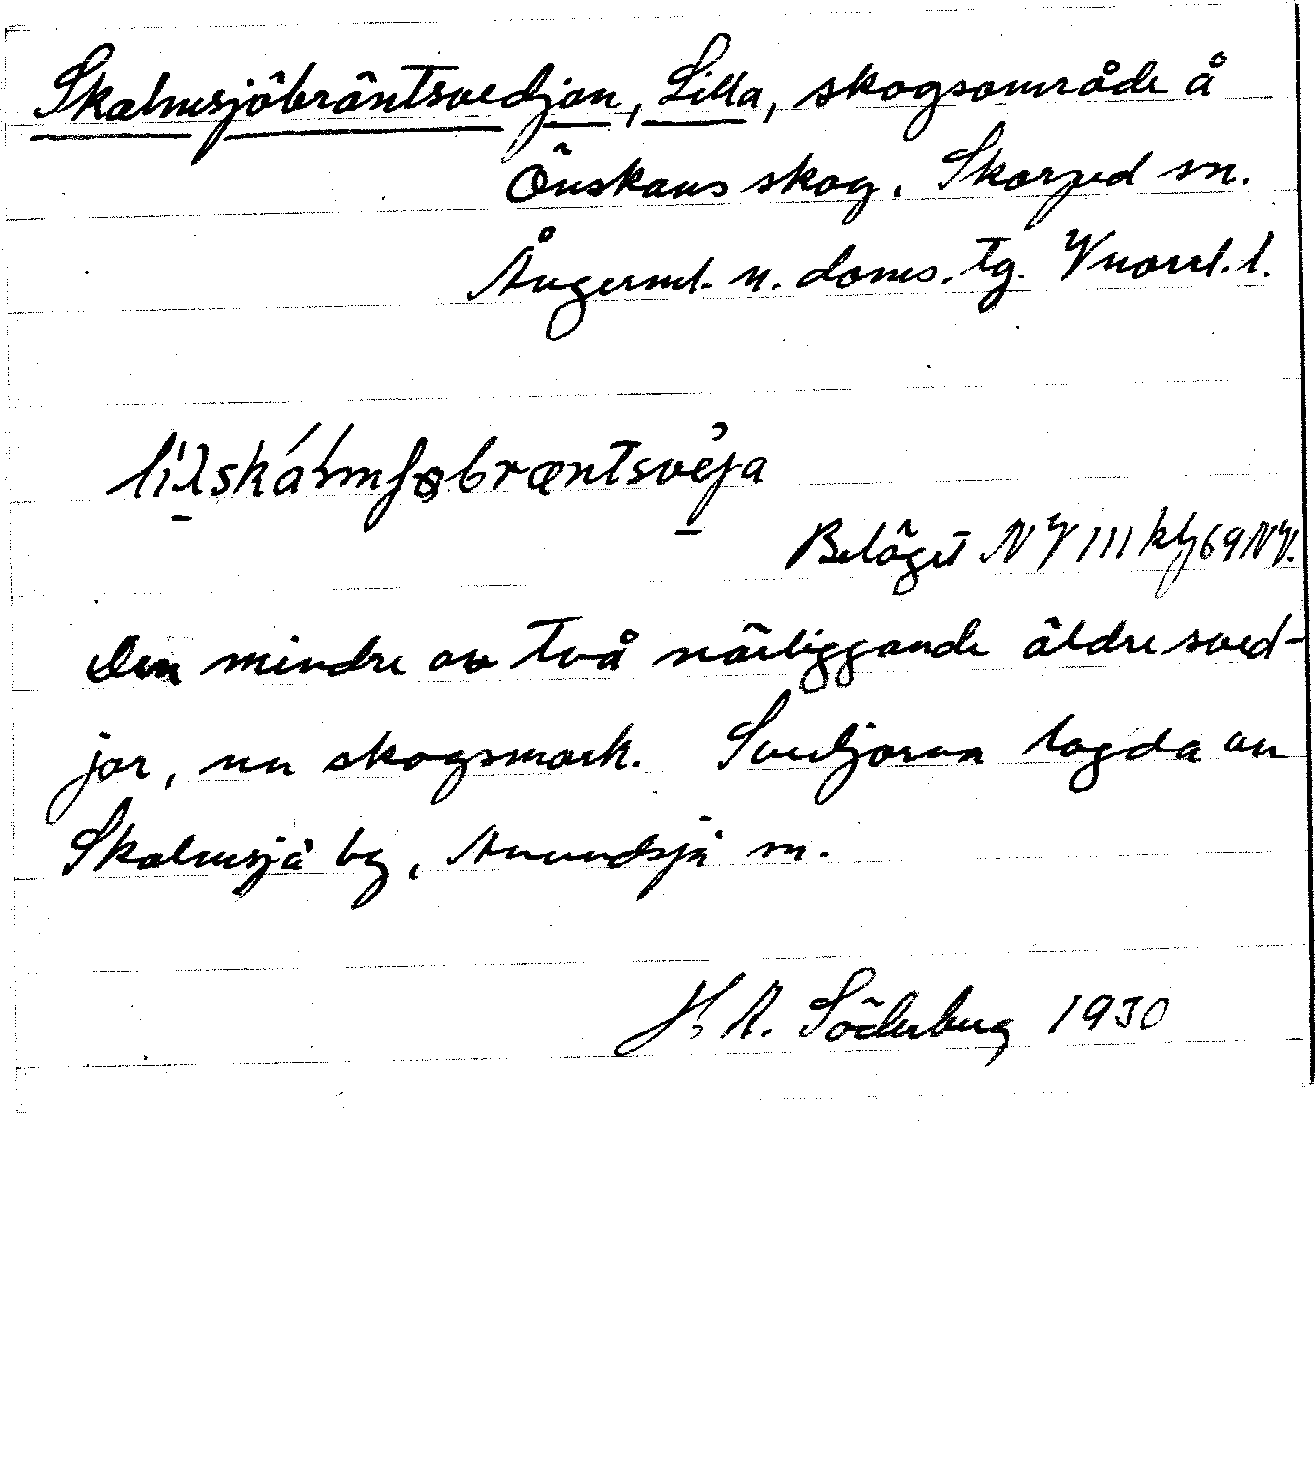 Skalmsjöbräntsvedjan, Lilla, skogsområde å
Önskans skog. Skorped sn.
Ångerml. n. doms. tg. Vnorrl. l.
Beläget NV III
Den mindre av två närliggande äldre sved-
jor, nu skogsmark. Svedjorna lagda av
Skalmsjö by, Anundsjö sn.
H. A. Söderberg 1930